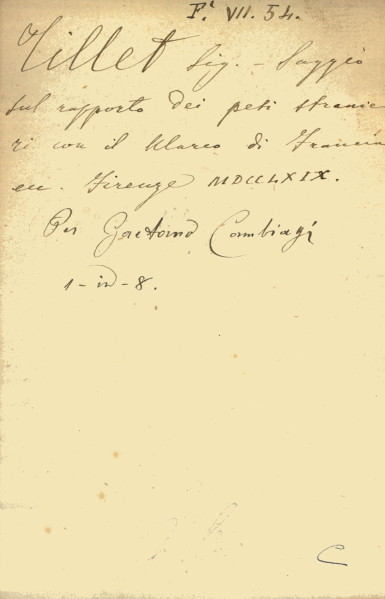 F.ª VII. 54.
Tillet Sig. - Saggio
sul rapporto dei pesi stranie
ri con il Marco di Francia
ecc. Firenze MDCCLXIX.
Per Gaetano Cambiagi
1 - in - 8.
C